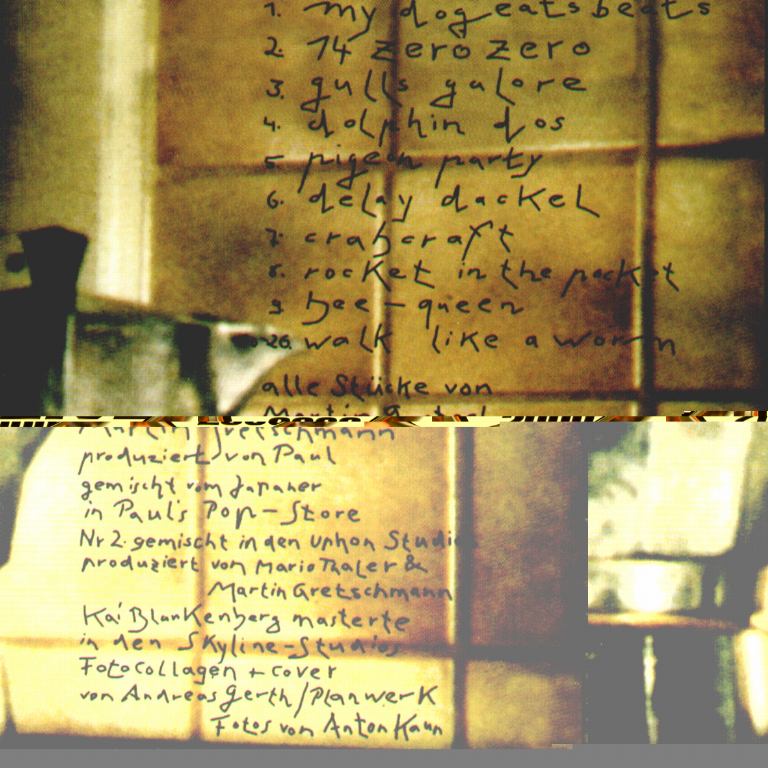 1. my dog eats beats
2. 14 zero zero
3. gulls galore
4. dolphin dos
5. pigeon party
6. delay dackel
7. crabcraft
8. rocket in the pocket
9. bee-queen
26. walk like a worm
alle Stücke von
Martin Gretschmann
produziert von Paul
gemischt vom Japaner
in Paul's Pop-Store
Nr 2. gemischt in den Uphon Studios
produziert von Mario Thaler &
Martin Gretschmann
Kai Blankenberg masterte
in den Skyline-Studios
Fotocollagen + cover
von Andreas Gerth/Planwerk
Fotos von Anton Kaun